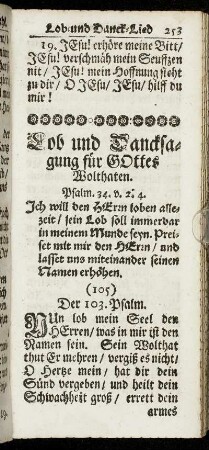 Lob und Danck-Lied 253
19. JEsu! erhöre meine Bitt/
JEsu! verschmäh mein Seuffzen
nit/ JEsu! mein Hoffnung steht
zu dir/ O JEsu/ JEsu/ hilff du
mir!
Lob und Dancksa-
gung für GOttes
Wolthaten.
Psalm. 34. v. 2. 4.
Ich will den HErrn loben alle-
zeit/ sein Lob soll immerdar
in meinem Munde seyn. Prei-
set mit mir den HErrn/ und
lasset uns miteinander seinen
Namen erhöhen.
(105)
Der 103. Psalm.
NUn lob mein Seel den
HErren/ was in mir ist den
Namen sein. Sein Wolthat
thut Er mehren/ vergiß es nicht/
O Hertze mein/ hat dir dein
Sünd vergeben/ und heilt dein
Schwachheit groß/ errett dein
armes